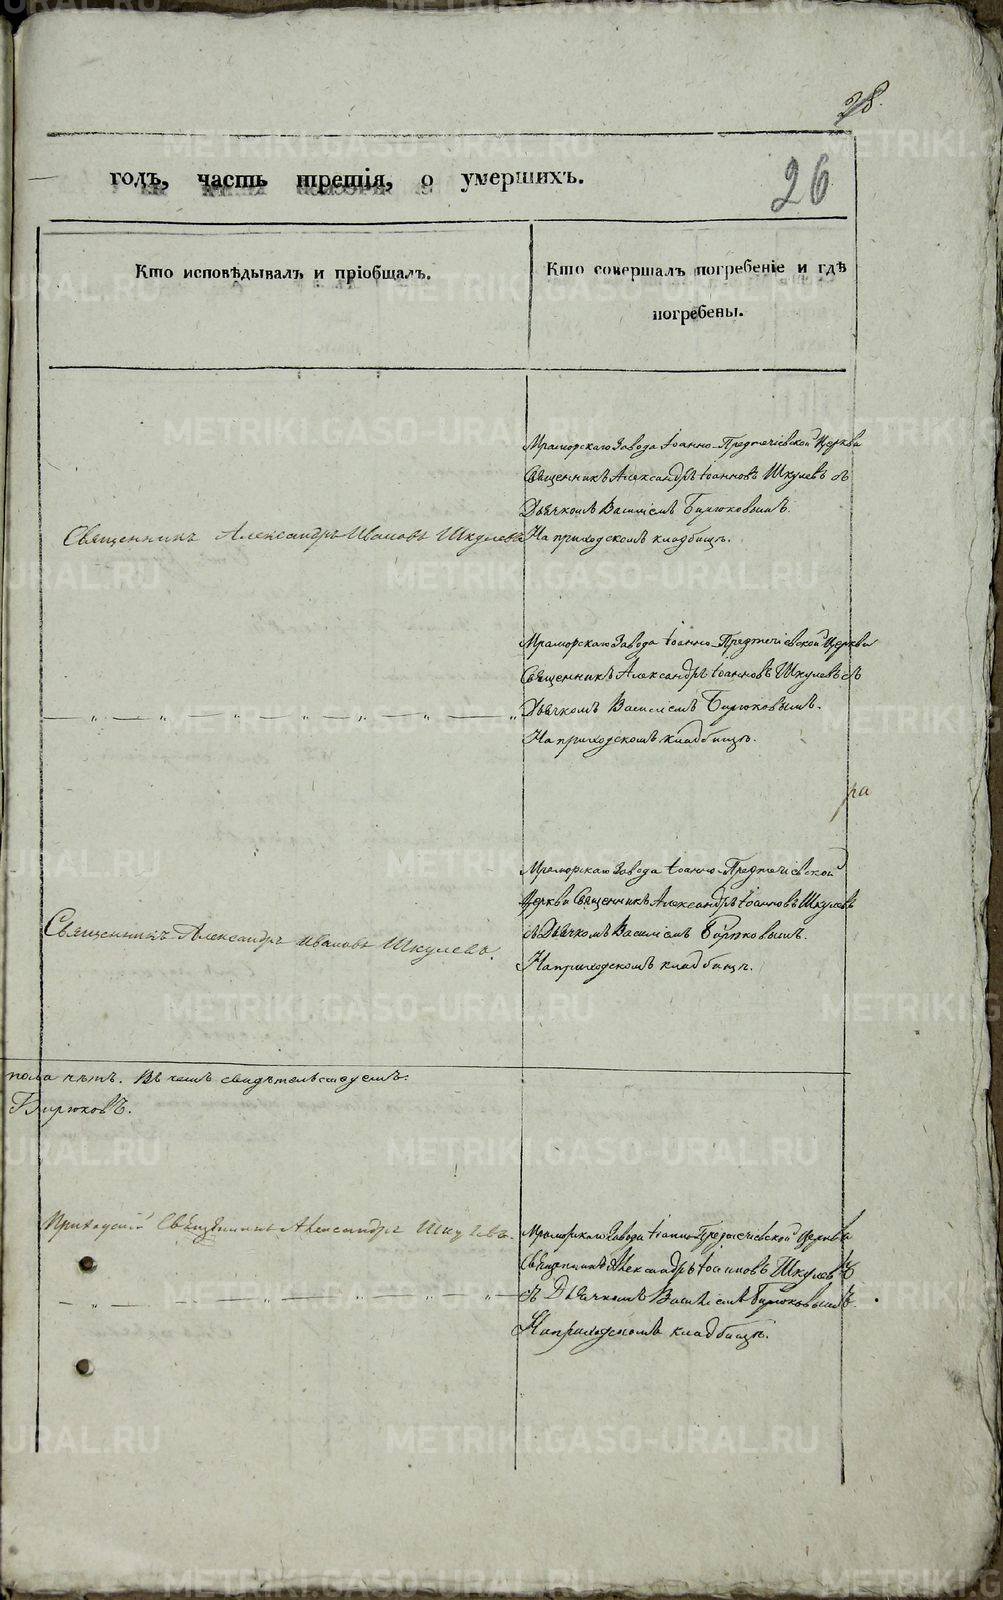 28.
годъ, часть третія, о умершихъ.
26
Кто исповѣдывалъ и пріобщалъ.
Кто совершалъ погребеніе и гдѣ
погребены.
Священникъ Александръ Ивановъ Шкулевъ
Мраморскаго Завода Іоанно-Предтечіевской Церкви
Священникъ Александръ Іоанновъ Шкулевъ съ
Дьячкомъ Василіемъ Бирюковымъ.
На приходскомъ кладбищѣ.
— „ — „ — „ — „ — „ — „ — „
Мраморскаго Завода Іоанно-Предтечіевской Церкви
Священникъ Александръ Іоанновъ Шкулевъ съ
Дьячкомъ Василіемъ Бирюковымъ.
На приходскомъ кладбищѣ.
ра
Священникъ Александръ Ивановъ Шкулевъ.
Мраморскаго Завода Іоанно-Предтечіевской
Церкви Священникъ Александръ Іоанновъ Шкулевъ
съ Дьячкомъ Василіемъ Бирюковымъ.
На приходскомъ кладбищѣ.
пола нѣтъ. Въ чемъ свидѣтельствуемъ:
Бирюковъ.
Приходский Священникъ Александръ Шкулевъ.
— „ — „ — „ — „ — „ — „
Мраморскаго Завода Іоанно-Предтечіевской Церкви
Священникъ Александръ Іоанновъ Шкулевъ
съ Дьячкомъ Василіемъ Бирюковымъ.
На приходскомъ кладбищѣ.
METRIKI.GASO-URAL.RU